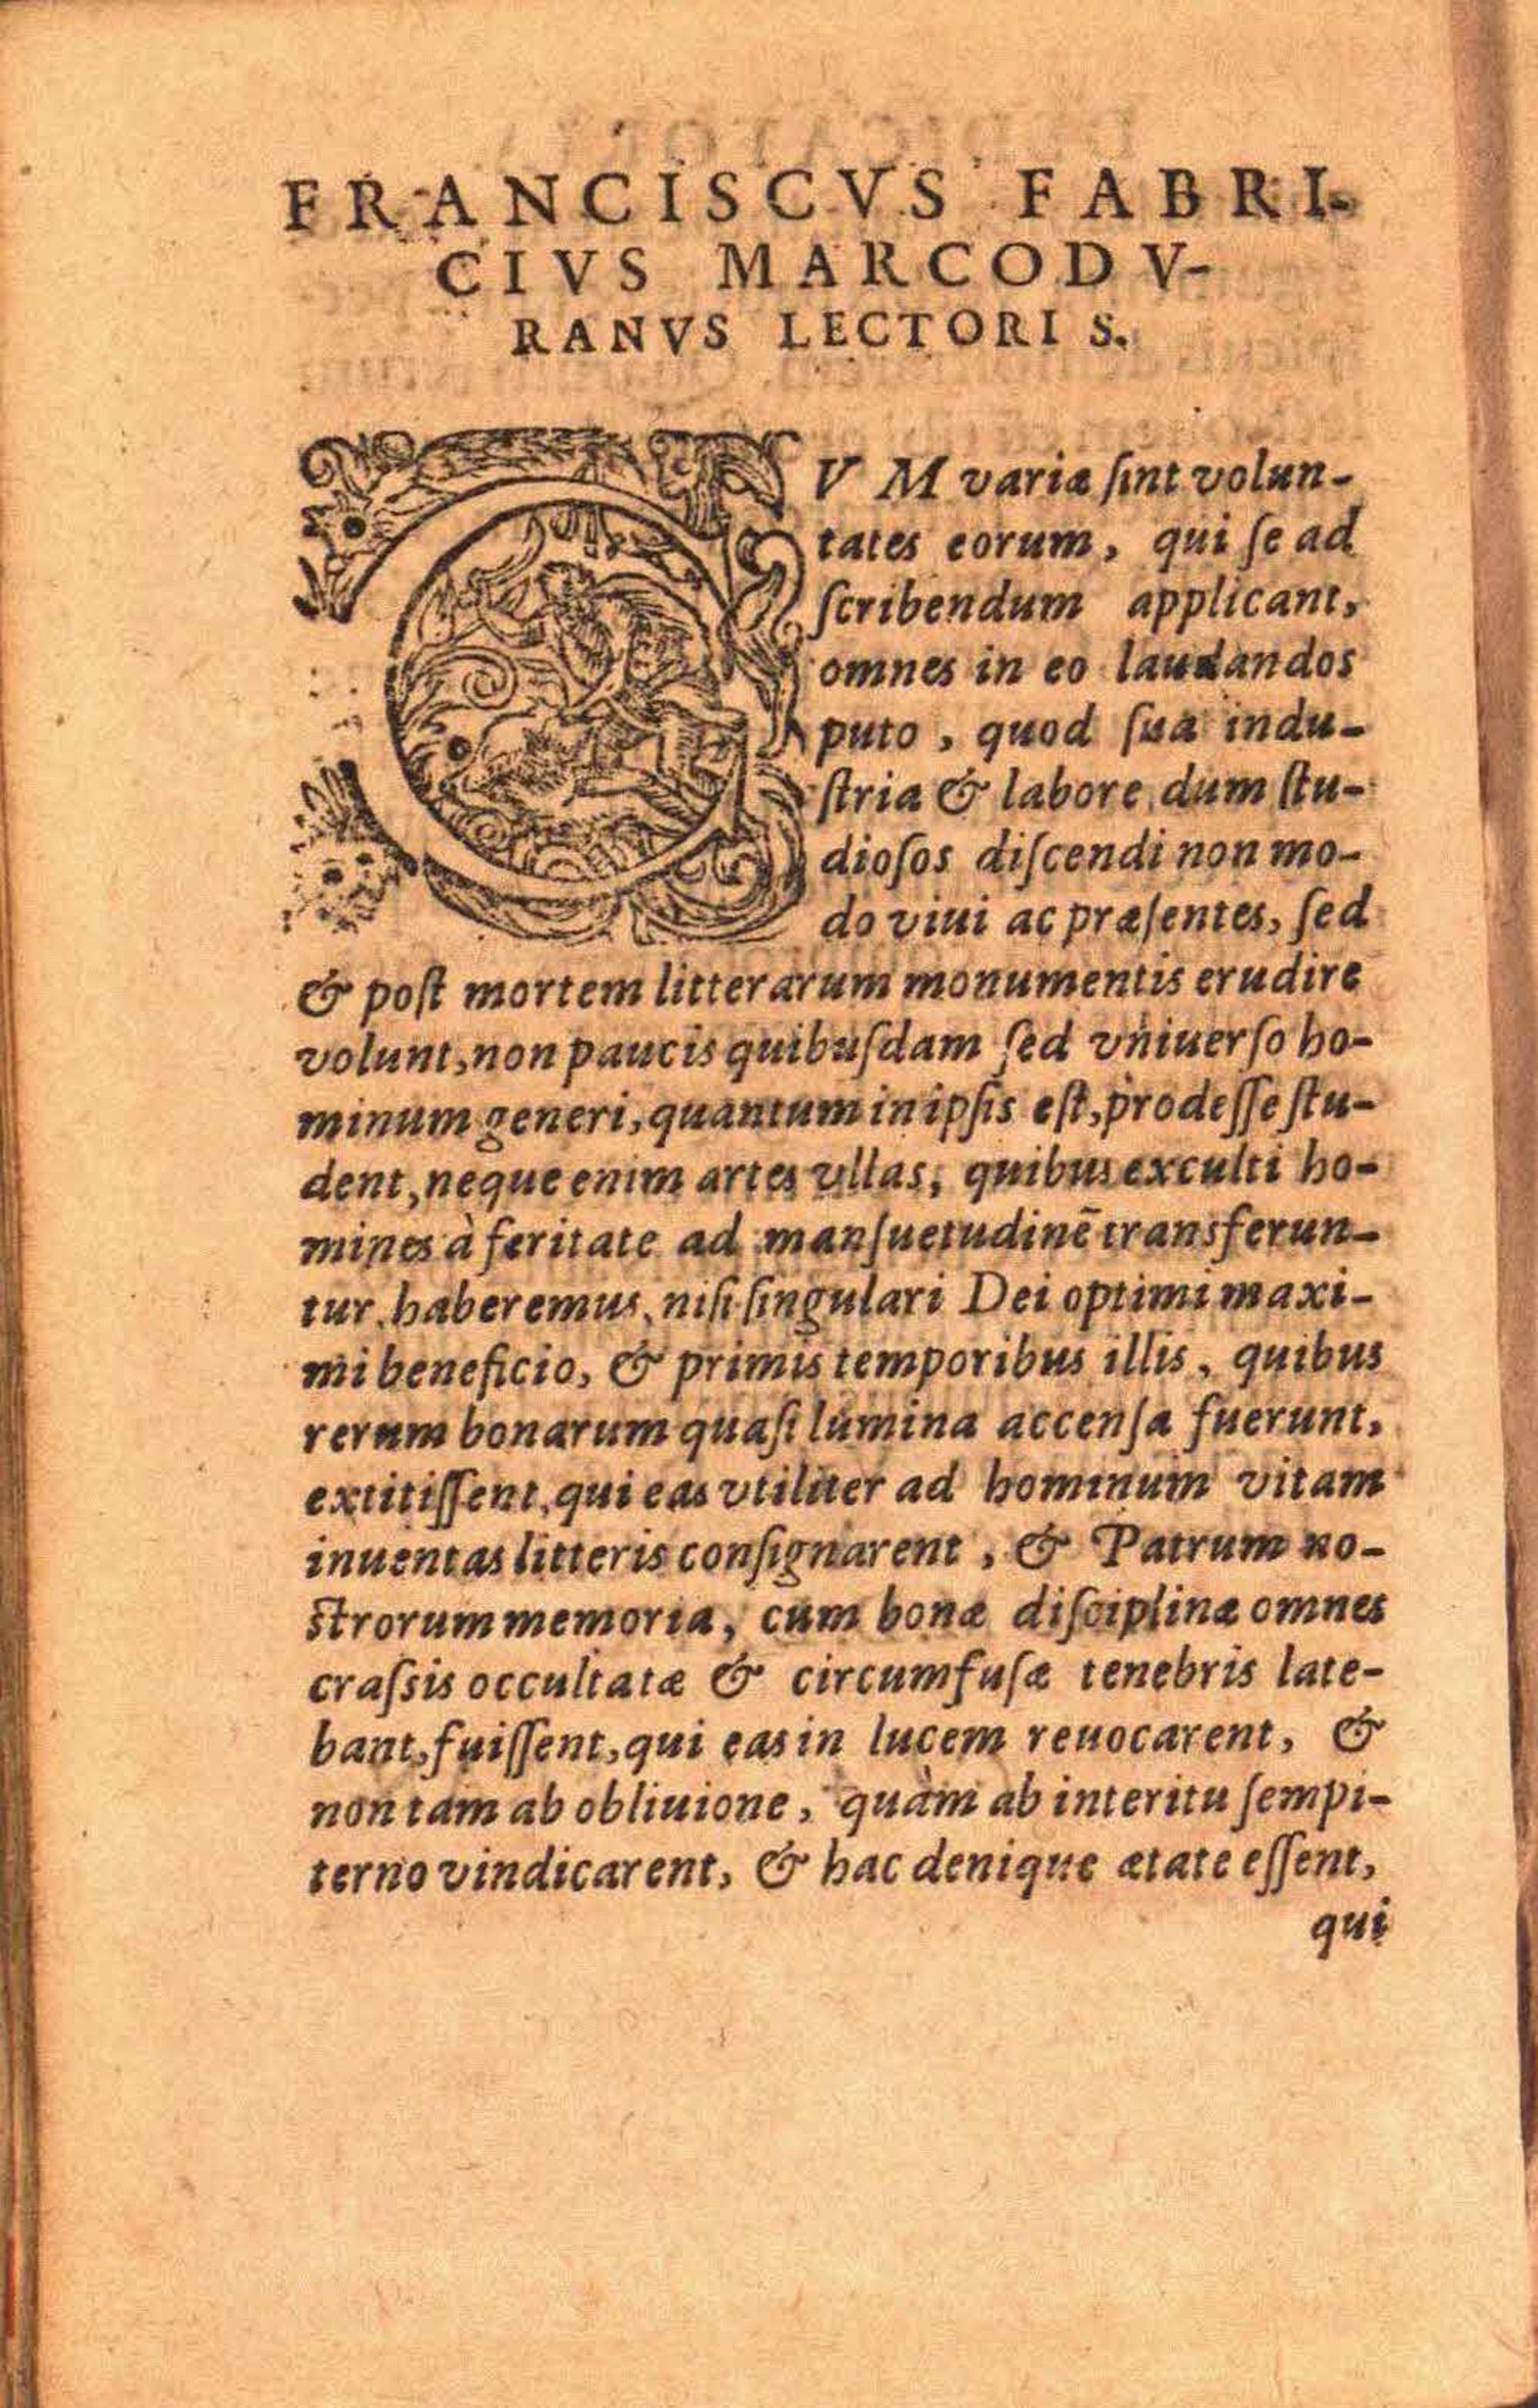 FRANCISCVS FABRI-
CIVS MARCODV-
RANVS LECTORI S.
CVM variæ ſint volun-
tates eorum, qui ſe ad
ſcribendum applicant,
omnes in eo laudandos
puto, quod ſua indu-
ſtria & labore, dum ſtu-
dioſos diſcendi non mo-
do viui ac præſentes, ſed
& poſt mortem litterarum monumentis erudire
volunt, non paucis quibuſdam ſed vniuerſo ho-
minum generi, quantum in ipſis eſt, prodeſſe ſtu-
dent, neque enim artes vllas, quibus exculti ho-
mines à feritate ad manſuetudinē transferun-
tur, haberemus, niſi ſingulari Dei optimi maxi-
mi beneficio, & primis temporibus illis, quibus
rerum bonarum quaſi lumina accenſa fuerunt,
extitiſſent, qui eas vtiliter ad hominum vitam
inuentas litteris conſignarent, & Patrum no-
ſtrorum memoria, cum bonæ diſciplinæ omnes
craſsis occultatæ & circumfuſæ tenebris late-
bant, fuiſſent, qui eas in lucem reuocarent, &
non tam ab obliuione, quàm ab interitu ſempi-
terno vindicarent, & hac denique ætate eſſent,
qui